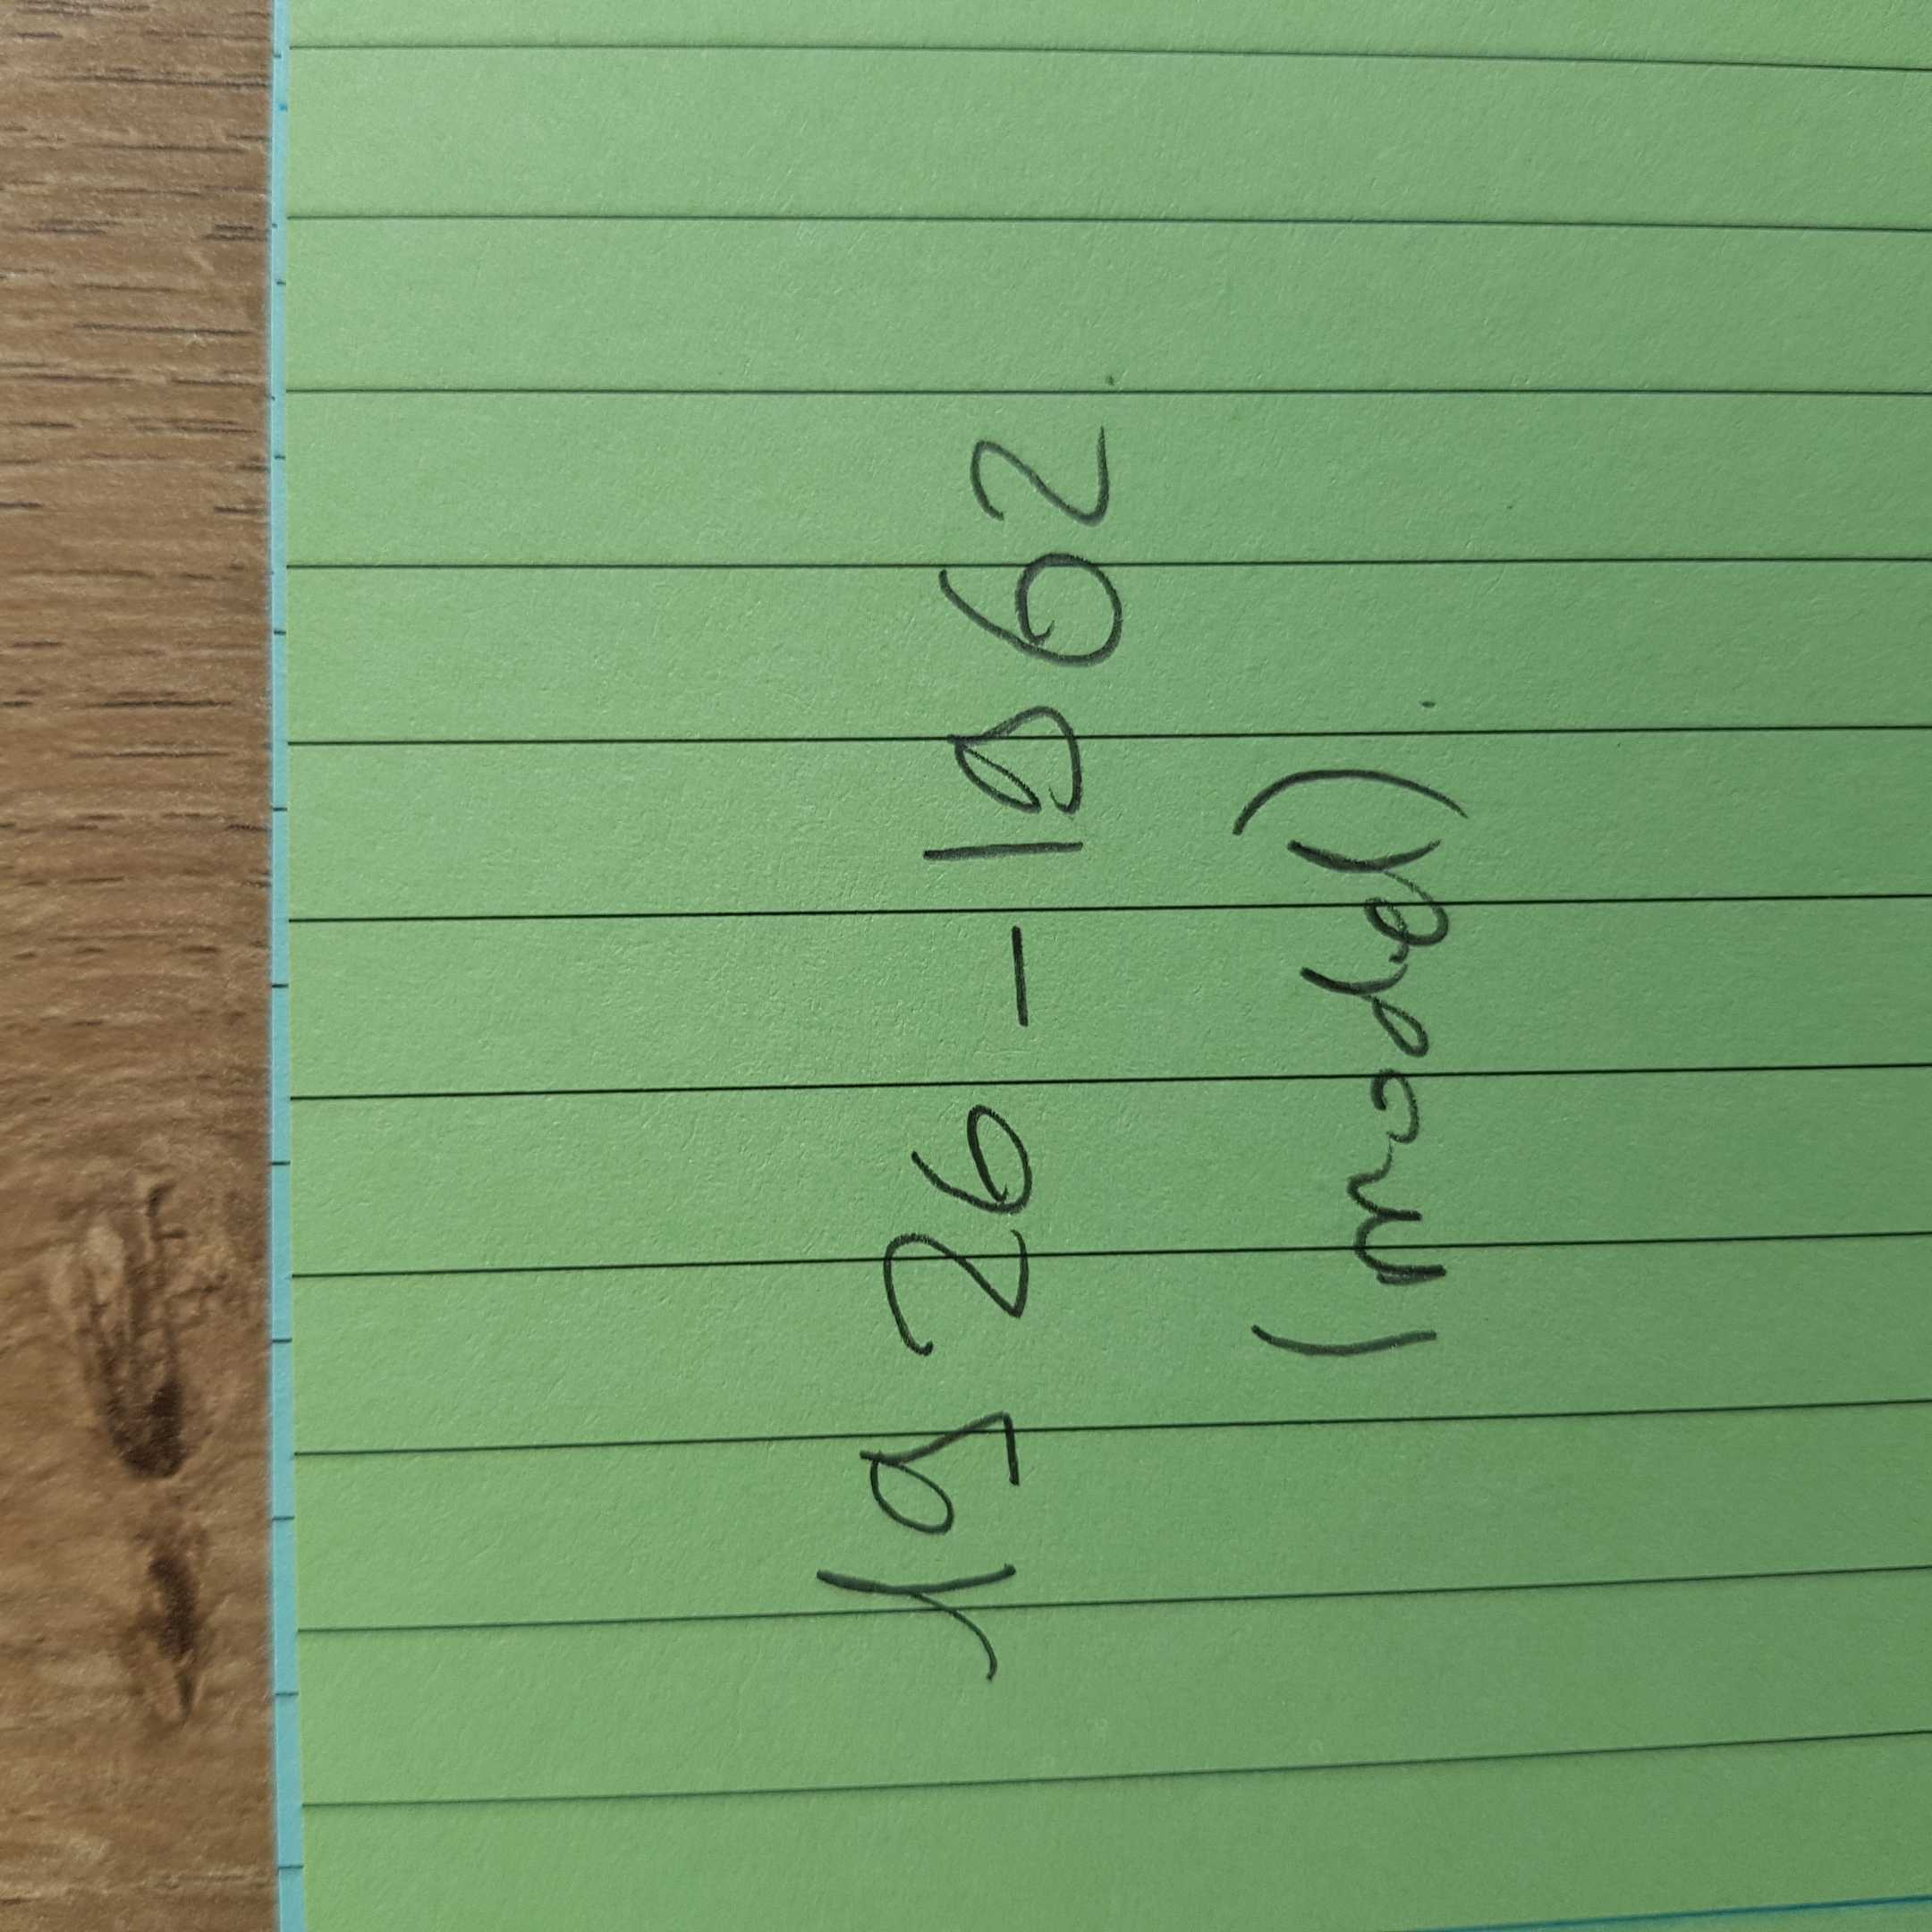 1926-1862
(model)